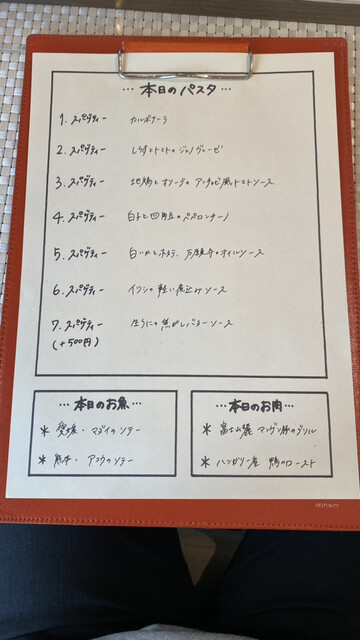 …本日のパスタ…
1. スパゲティー カルボナーラ
2. スパゲティー しらすとトマトのジェノヴェーゼ
3. スパゲティー 地鶏とオリーブの アンチョビ風トマトソース
4. スパゲティー 白子と四角豆のペペロンチーノ
5. スパゲティー 白いかとホタテ、万願寺のオイルソース
6. スパゲティー イワシの軽い煮込みソース
7. スパゲティー 生うにの焦がしバターソース
(+500円)
…本日のお魚…
* 愛媛・マダイのソテー
* 熊本・アコウのソテー
…本日のお肉…
* 富士山麓 マンゲン豚のグリル
* ハンガリー産 鴨のロースト